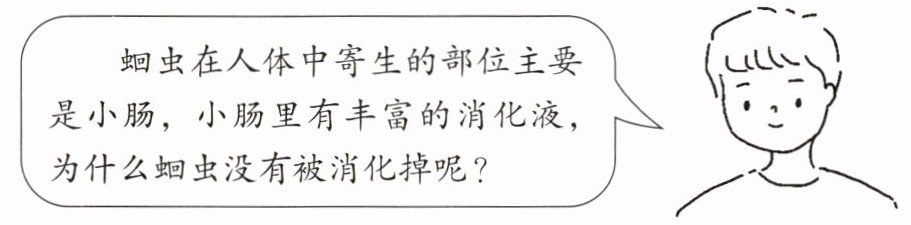 蛔虫在人体中寄生的部位主要
是小肠，小肠里有丰富的消化液，
为什么蛔虫没有被消化掉呢？